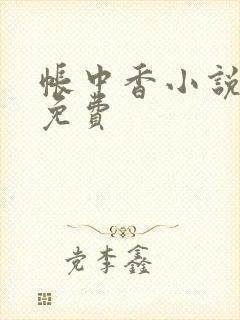 帳中香小說
免費
党李鑫